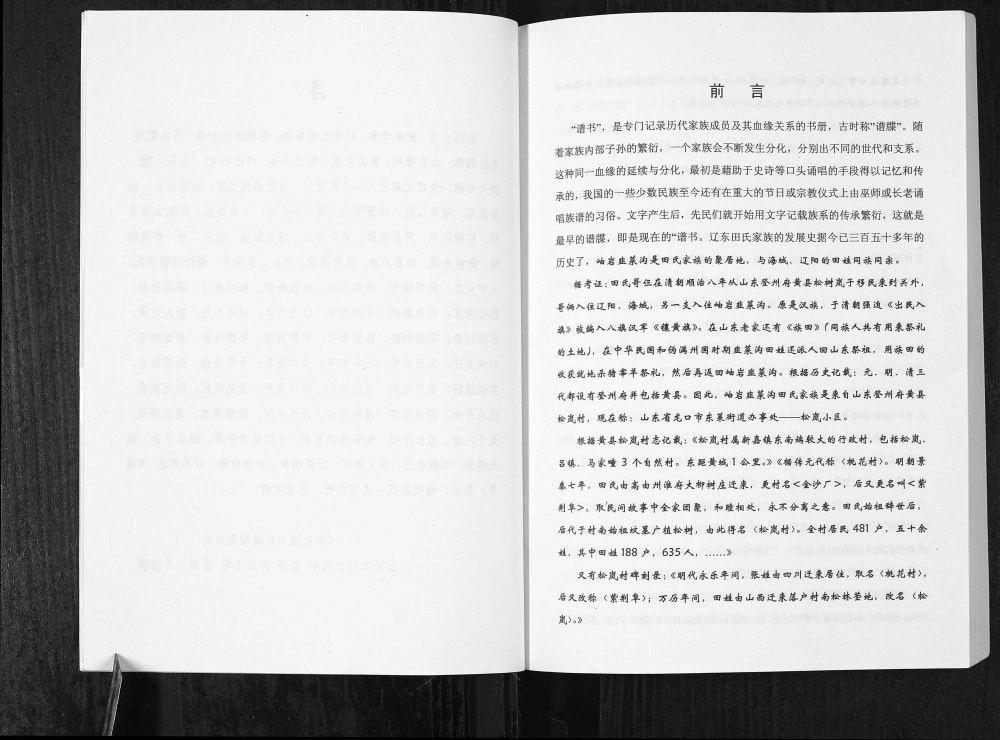 前 言
“谱书”，是专门记录历代家族成员及其血缘关系的书册，古时称“谱牒”。随
着家族内部子孙的繁衍，一个家族会不断发生分化，分别出不同的世代和支系。
这种同一血缘的延续与分化，最初是藉助于史诗等口头诵唱的手段得以记忆和传
承的，我国的一些少数民族至今还有在重大的节日或宗教仪式上由巫师或长老诵
唱族谱的习俗。文字产生后，先民们就开始用文字记载族系的传承繁衍，这就是
最早的谱牒，即是现在的“谱书。辽东田氏家族的发展史据今已三百五十多年的
历史了，岫岩韭菜沟是田氏家族的聚居地，与海城、辽阳的田姓同族同宗。
据考证：田氏哥仨在清朝顺治八年从山东登州府黄县松树岚子移民来到关外，
哥俩入住辽阳、海城，另一支入住岫岩韭菜沟。原是汉族，于清朝强迫《出民入
旗》被编入八旗汉军《镶黄旗》。在山东老家还有《族田》「同族人共有用来祭礼
的土地」，在中华民国和伪满州国时期韭菜沟田姓还派人回山东祭祖，用族田的
收获就地杀猪宰羊祭礼，然后再返回岫岩韭菜沟。根据历史记载：元、明、清三
代都设有登州府并包括黄县。因此，岫岩韭菜沟田氏家族是来自山东登州府黄县
松岚村，现在称：山东省龙口市东莱街道办事处——松岚小区。
根据黄县松岚村志记载：《松岚村属新嘉镇东南端较大的行政村，包括松岚、
吕镇，马家疃 3 个自然村。东距黄城 1 公里。》《据传元代称〈桃花村〉。明朝景
泰七年，田氏由高由州淮府大柳树庄迁来，更村名<金沙厂>，后又更名叫<紫
荆阜>，取民间故事中全家团聚，和睦相处，永不分离之意。田氏始祖辞世后，
后代于村南始祖坟墓广植松树，由此得名〈松岚村〉。全村居民 481 户，五十余
姓，其中田姓 188 户，635 人，……》
又有松岚村碑刻录：《明代永乐年间，张姓由四川迁来居住，取名〈桃花村〉，
后又改称〈紫荆阜〉；万历年间，田姓由山西迁来落户村南松林茔地，改名〈松
岚〉。》